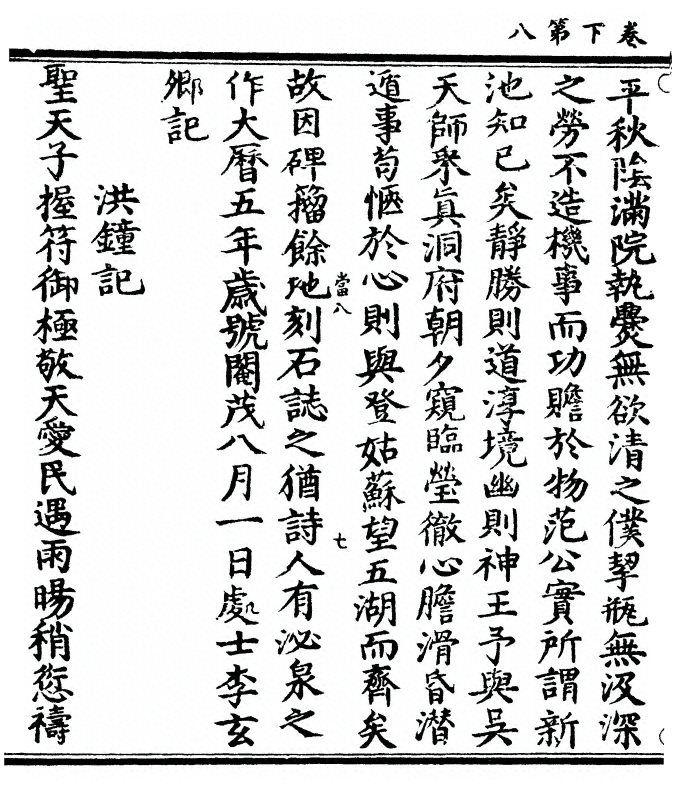 卷下第八
平秋陰滿院執㸑無欲清之僕挈瓶無汲深
之勞不造機事而功贍於物范公實所謂新
池知已矣靜勝則道淳境幽則神王予與吳
天師衆真洞府朝夕窺臨瑩徹心膽滑昏潛
遁事苟愜於心則與登姑蘇望五湖而齊矣
故因碑籀餘地刻石誌之猶詩人有泌泉之
當八
七
作大曆五年歲號閹茂八月一日處士李玄
卿記
洪鐘記
聖天子握符御極敬天愛民遇雨暘稍愆禱